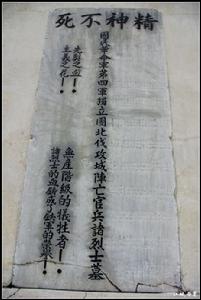 精神不死
國民革命軍第四軍獨立團北伐攻城陣亡官兵諸烈士墓
先烈之血—！
主義之花—！
無產階級的犧牲者—！
諸烈士的血鑄成了鐵軍的榮譽—！